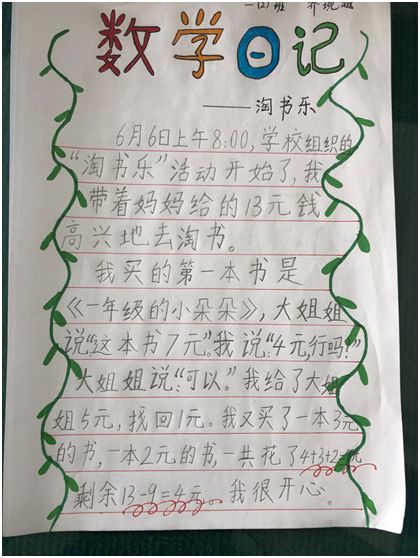 一(2)班
数学日记
——淘书乐
6月6日上午8:00,学校组织的
“淘书乐”活动开始了,我
带着妈妈给的13元钱
高兴地去淘书。
我买的第一本书是
《一年级的小朵朵》,大姐姐
说“这本书7元”。我说:“4元行吗?”
大姐姐说:“可以。”我给了大姐
姐5元,找回1元。我又买了一本3元
的书,一本2元的书,一共花了4+3+2=9元
剩余13-9=4元。我很开心。